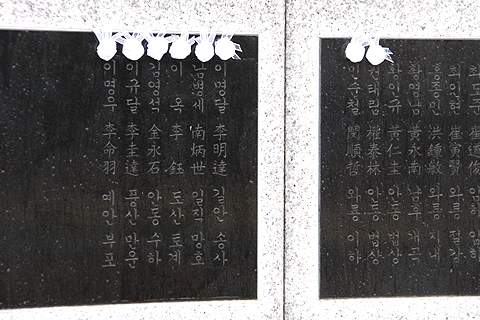 崔道俊 임하
최인현 崔寅賢 와룡 절강
홍종민 洪鍾敏 와룡 지내
황영남 黃永南 남후 개곡
황인규 黃仁圭 안동 법상
권태림 權泰林 안동 법상
민순철 閔順哲 와룡 이하
이명달 李明達 길안 송사
남병세 南炳世 일직 망호
이 옥 李 鈺 도산 토계
김영석 金永石 안동 수하
이규달 李圭達 풍산 만운
이명우 李命羽 예안 부포